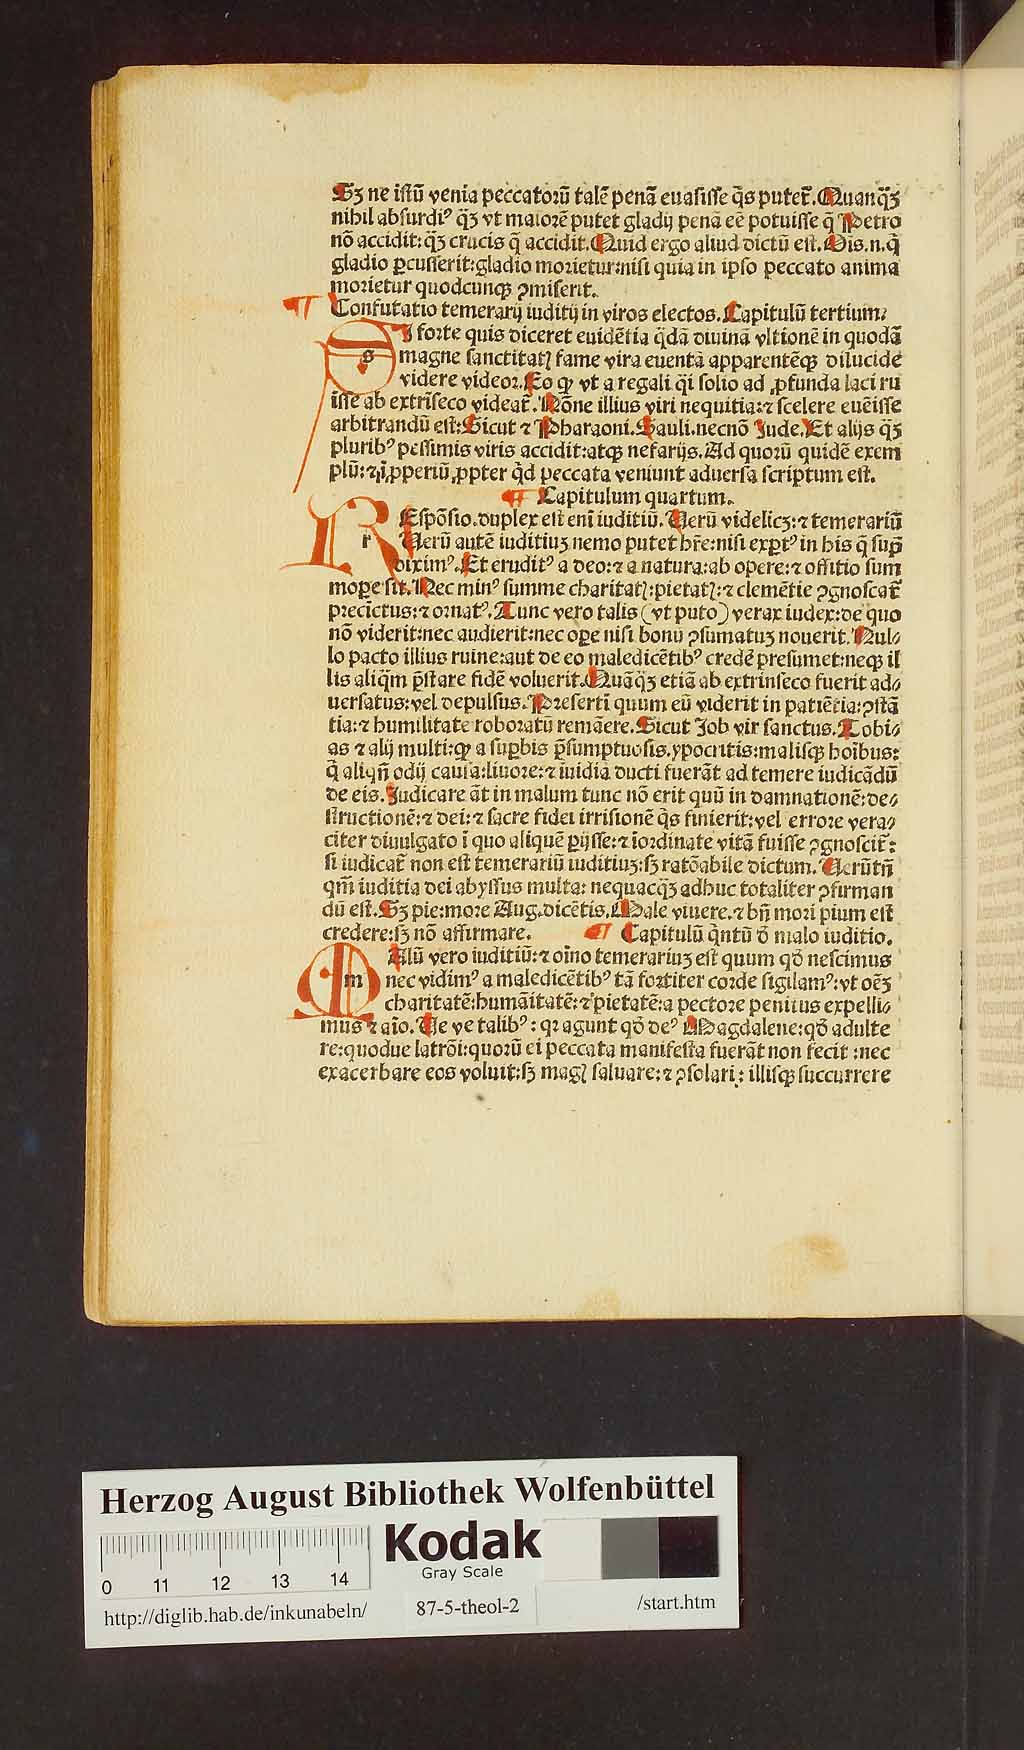 Sꝫ ne iſtū venia peccatoꝝ talē penā euaſiſſe q̄s putet᷑. Quanq̄ꝫ
nihil abſurdiꝰ q̄ꝫ vt maiorē putet gladij penā eē potuiſſe q̄ Petro
nō accidit: q̄ꝫ crucis q̄ accidit. Quid ergo aliud dictū eſt. Ois.n.q̄
gladio ꝑcuſſerit: gladio morietur: niſi quia in ipſo peccato anima
morietur quodcunqꝫ ꝯmiſerit.
¶ Confutatio temerarij iuditij in viros electos. Capitulū tertium.
sI forte quis diceret euidētia q̄dā diuinā vltionē in quodā
magne ſanctitatꝭ fame vira euentā apparentēqꝫ dilucide
videre videor. Eo ꝙ vt a regali q̄i ſolio ad ꝓfunda laci ru
iſſe ab extrīſeco videat᷑. Nōne illius viri nequitia: ⁊ ſcelere euēiſſe
arbitrandū eſt: Sicut ⁊ Pharaoni. Sauli. necnō Jude. Et alijs q̄ꝫ
pluribꝰ peſſimis viris accidit: atqꝫ nefarijs. Ad quorū quidē exem
plū: ⁊ īꝓperiū ꝓpter q̄d peccata veniunt aduerſa ſcriptum eſt.
¶ Capitulum quartum.
rEſpōſio. duplex eſt enī iuditiū. Uerū videlicꝫ: ⁊ temerariū
Uerū autē iuditiuꝫ nemo putet hr̄e: niſi exꝑtꝰ in his q̄ ſupͣ
diximꝰ. Et eruditꝰ a deo: ⁊ a natura: ab opere: ⁊ offitio ſum
moꝑe ſit. Nec minꝰ ſumme charitatꝭ: pietatꝭ: ⁊ clemētie ꝯgnoſcat᷑
precīctus: ⁊ ornatꝰ. Tunc vero talis (vt puto) verax iudex: de quo
nō viderit: nec audierit: nec oꝑe niſi bonū ꝯſumatuꝫ nouerit. Nul⸗
lo pacto illius ruine: aut de eo maledicētibꝰ credē preſumet: neqꝫ il
lis aliq̄m p̄ſtare fidē voluerit. Quāq̄ꝫ etiā ab extrinſeco fuerit ad⸗
uerſatus: vel depulſus. Preſertī quum eū viderit in patiētia: ꝯſtā
tia: ⁊ humilitate roboratū remāere. Sicut Job vir ſanctus. Tobi⸗
as ⁊ alij multi: ꝙ a ſuꝑbis p̄ſumptuoſis. ypocritis: maliſqꝫ hoībus:
q̄ aliqn̄ odij cauſa: liuore: ⁊ īuidia ducti fuerāt ad temere iudicādū
de eis. Judicare āt in malum tunc nō erit quū in damnationē: de⸗
ſtructionē: ⁊ dei: ⁊ ſacre fidei irriſionē q̄s finierit: vel errore vera⸗
citer diuulgato ī quo aliquē ꝑijſſe: ⁊ īordinate vitā fuiſſe ꝯgnoſcit᷑:
ſi iudicat᷑ non eſt temerariū iuditiuꝫ: ſꝫ ratōabile dictum. Uerūtn̄
qm̄ iuditia dei abyſſus multa: nequacq̄ꝫ adhuc totaliter ꝯfirman
dū eſt. Sꝫ pie: more Aug. dicētis. Male viuere. ⁊ bn̄ mori pium eſt
credere: ſꝫ nō affirmare. ¶ Capitulū q̄ntū d̄ malo iuditio.
mAlū vero iuditiū: ⁊ oīno temerariuꝫ eſt quum qd̄ neſcimus
nec vidimꝰ a maledicētibꝰ tā fortiter corde ſigilamꝰ: vt oēꝫ
charitatē: humāitatē: ⁊ pietatē: a pectore penitus expelli⸗
mus ⁊ aīo. Ue ve talibꝰ: qꝛ agunt qd̄ deꝰ Magdalene: qd̄ adulte
re: quodue latrōi: quorū ei peccata manifeſta fuerāt non fecit: nec
exacerbare eos voluit: ſꝫ magꝭ ſaluare: ⁊ ꝯſolari: illiſqꝫ ſuccurrere
Herzog August Bibliothek Wolfenbüttel
Kodak
Gray Scale
0 11 12 13 14
http://diglib.hab.de/inkunabeln/ 87-5-theol-2 /start.htm